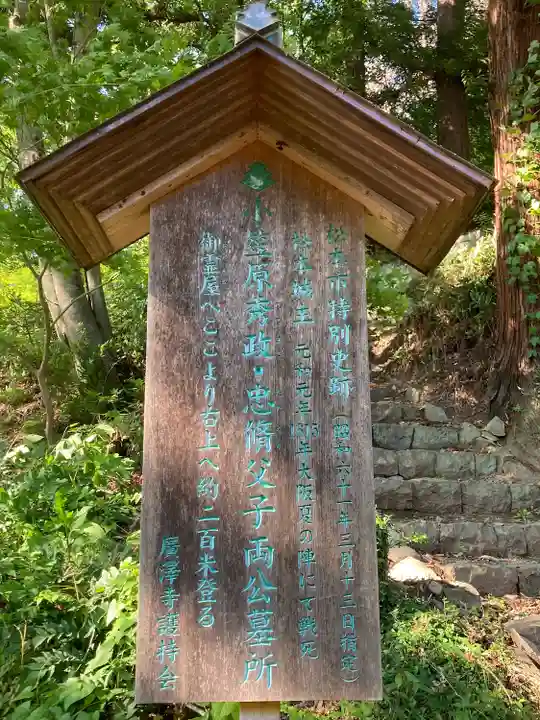 松本市特別史跡（昭和六十一年三月十三日指定）
松本城主 元和元年1615年大阪夏の陣にて戦死
小笠原秀政・忠脩父子両公墓所
御霊屋へここより右上へ約二百米登る
廣澤寺護持会